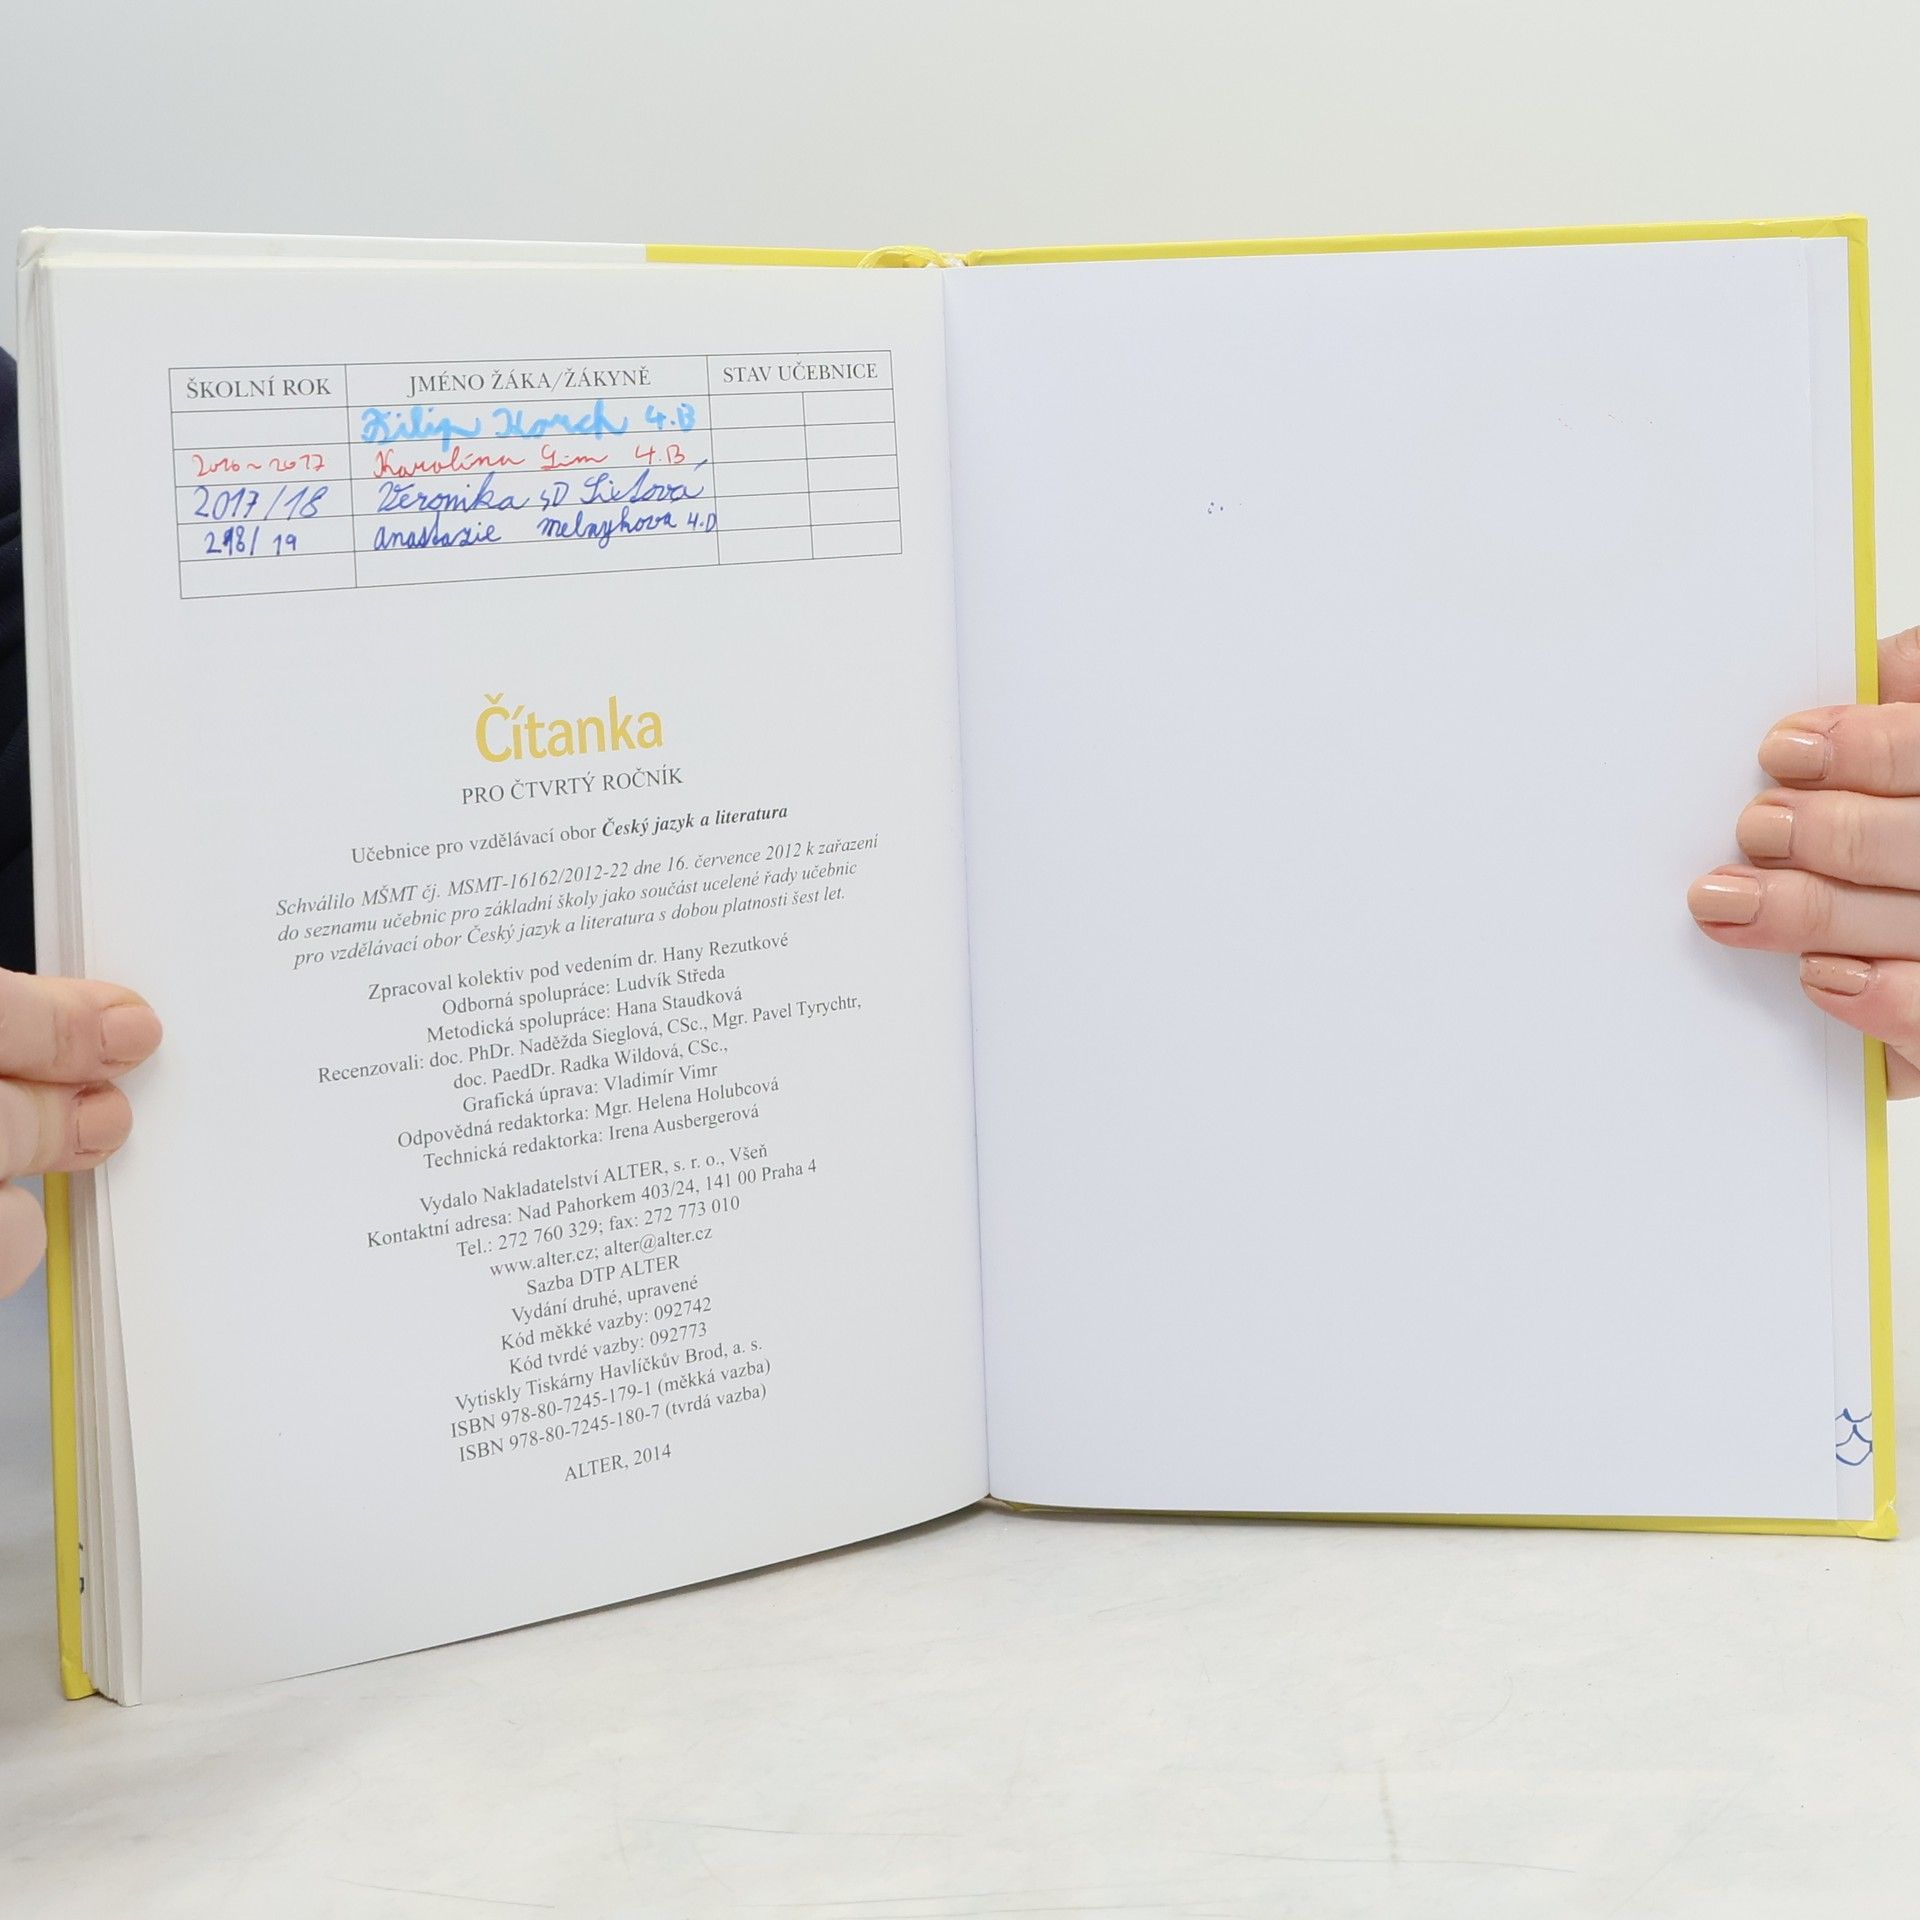 ŠKOLNÍ ROK JMÉNO ŽÁKA/ŽÁKYNĚ STAV UČEBNICE
Filip Korch 4.B
2016~2017 Karolína Lim 4.B
2017/18 Veronika
218/ 19 Anastazie Melnykova 4.D
Čítanka
PRO ČTVRTÝ ROČNÍK
Učebnice pro vzdělávací obor Český jazyk a literatura
Schválilo MŠMT čj. MSMT-16162/2012-22 dne 16. července 2012 k zařazení
do seznamu učebnic pro základní školy jako součást ucelené řady učebnic
pro vzdělávací obor Český jazyk a literatura s dobou platnosti šest let.
Zpracoval kolektiv pod vedením dr. Hany Rezutkové
Odborná spolupráce: Ludvík Středa
Metodická spolupráce: Hana Staudková
Recenzovali: doc. PhDr. Naděžda Sieglová, CSc., Mgr. Pavel Tyrychtr,
doc. PaedDr. Radka Wildová, CSc.,
Grafická úprava: Vladimír Vimr
Odpovědná redaktorka: Mgr. Helena Holubcová
Technická redaktorka: Irena Ausbergerová
Vydalo Nakladatelství ALTER, s. r. o., Všeň
Kontaktní adresa: Nad Pahorkem 403/24, 141 00 Praha 4
Tel.: 272 760 329; fax: 272 773 010
www.alter.cz; alter@alter.cz
Sazba DTP ALTER
Vydání druhé, upravené
Kód měkké vazby: 092742
Kód tvrdé vazby: 092773
Vytiskly Tiskárny Havlíčkův Brod, a. s.
ISBN 978-80-7245-179-1 (měkká vazba)
ISBN 978-80-7245-180-7 (tvrdá vazba)
ALTER, 2014